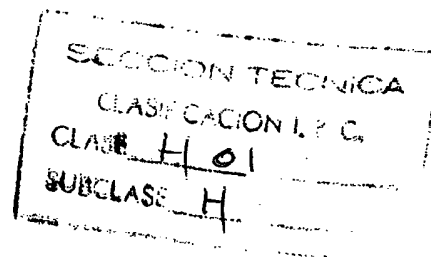 SECCION TECNICA
CLASIFICACION I. P. C.
CLASE H 01
SUBCLASE H